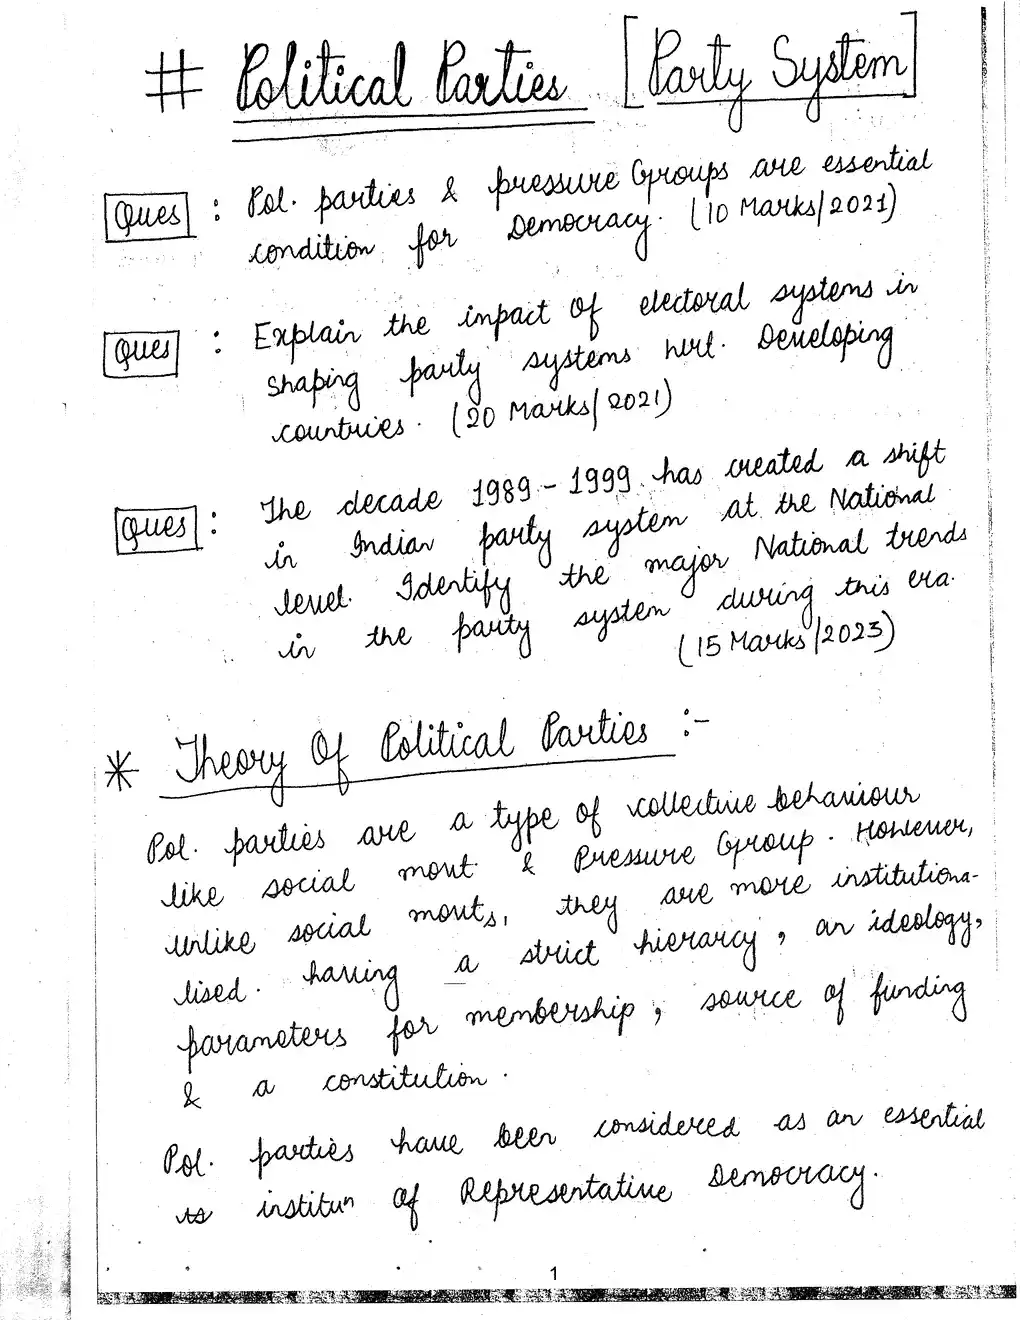 # Political Parties [Party System]
Ques : Pol. parties & pressure Groups are essential
condition for Democracy. (10 Marks/2021)
Ques : Explain the impact of electoral systems in
shaping party systems wrt. Developing
countries. (20 Marks/2021)
Ques : The decade 1989 - 1999 has created a shift
in Indian party system at the National
level. Identify the major National trends
in the party system during this era.
(15 Marks/2023)
* Theory Of Political Parties :-
Pol. parties are a type of collective behaviour
like social mov't & Pressure Group. However,
unlike social mov'ts, they are more institutiona-
lised. having a strict hierarcy, an ideology,
parameters for membership, source of funding
& a constitution.
Pol. parties have been considered as an essential
institun of Representative Democracy.
1